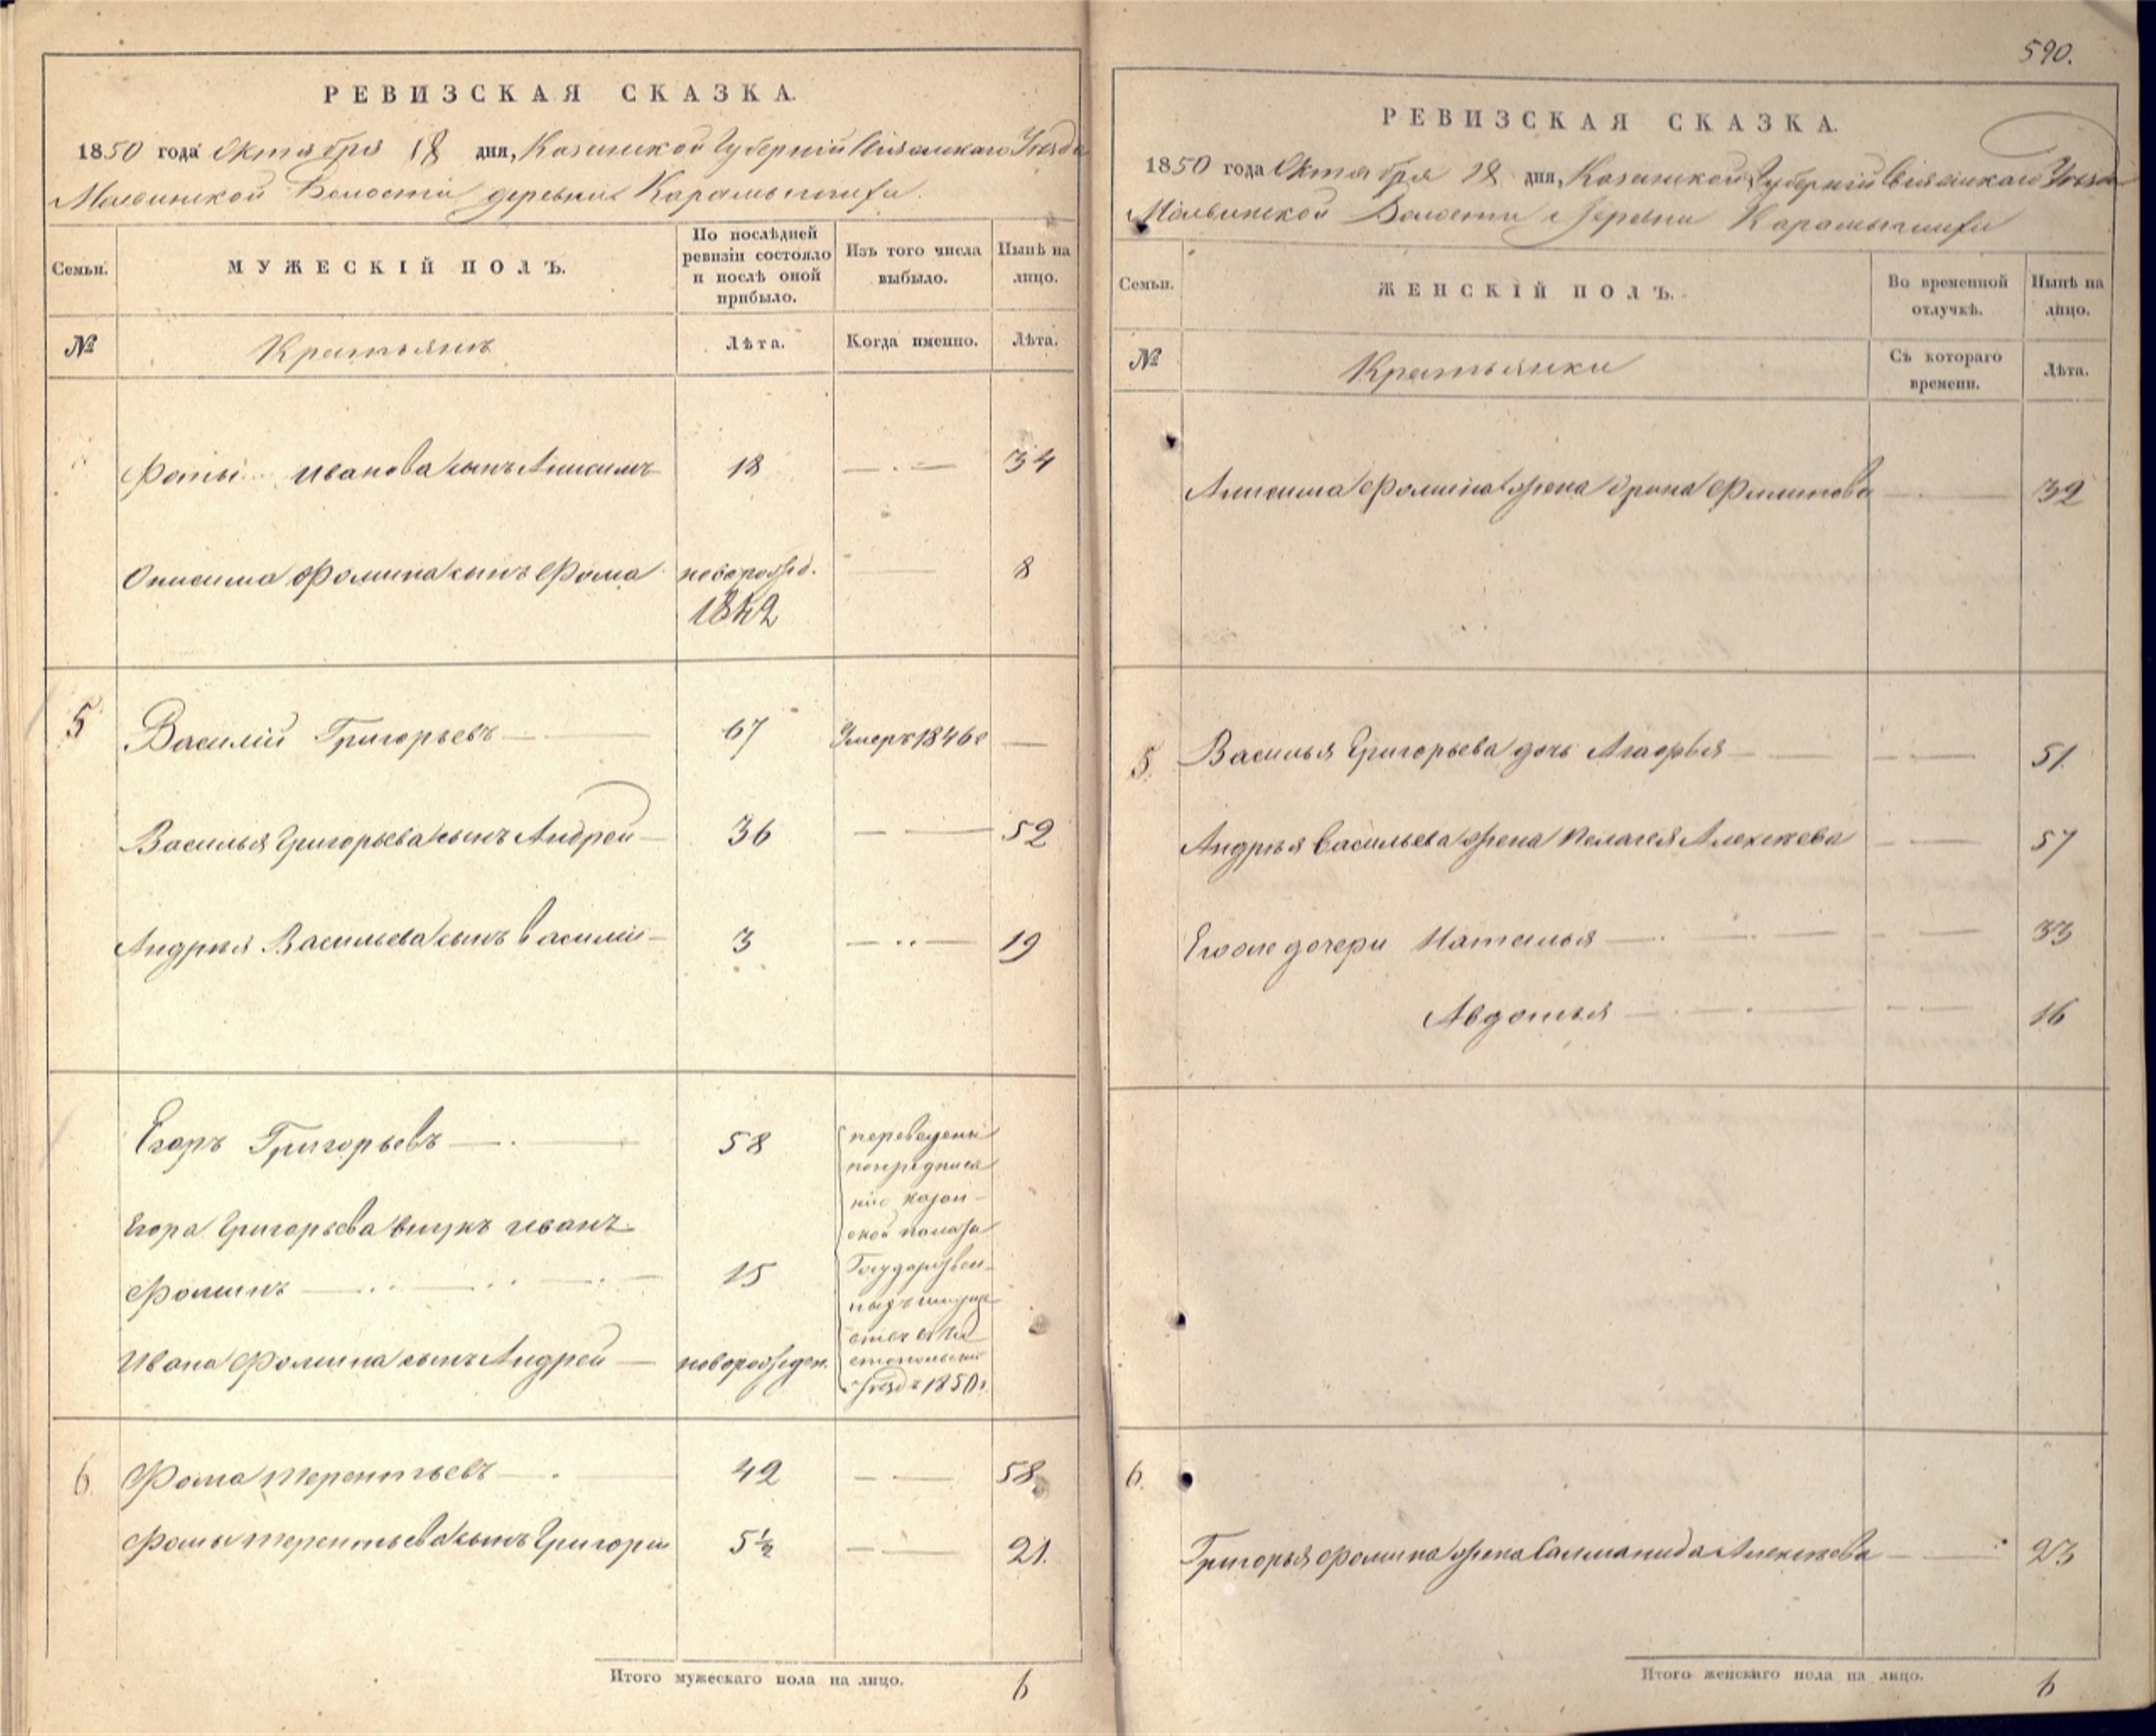 РЕВИЗСКАЯ СКАЗКА.
1850 года Октября 18 дня, Казанской Губернiи Свiяжскаго Уезда
Волости деревни Карамышихи.
Семьи.
МУЖЕСКIЙ ПОЛЪ.
По послѣдней ревизiи состояло и послѣ оной прибыло.
Изъ того числа выбыло.
Нынѣ на лицо.
№
Крестьянъ
Лѣта.
Когда именно.
Лѣта.
Фомы Иванова сынъ Анисимъ 18 — 34
Онисима Фомина сынъ Фома новорожд. — 8
1842
5 Василiй Григорьевъ — 67 Умеръ 1846 г —
Василья Григорьева сынъ Андрей — 36 — 52
Андрея Васильева сынъ Василiй — 3 — 19
Егоръ Григорьевъ — 58
Егора Григорьева внукъ Иванъ
Фоминъ — 15
Ивана Фомина сынъ Андрей — новорожден.
переведены
по предписа
нiю Казан-
ской палаты
Государствен-
ныхъ имуще
ствъ
уездъ 1850 г.
6 Фома Терентьевъ — 42 — 58
Фомы Терентьева сынъ Григорiй 5½ — 21.
Итого мужескаго пола на лицо. 6
590.
РЕВИЗСКАЯ СКАЗКА.
1850 года Октября 18 дня, Казанской Губернiи Свiяжскаго Уезда
Волости деревни Карамышихи
Семьи.
ЖЕНСКIЙ ПОЛЪ.
Во временной отлучкѣ.
Нынѣ на лицо.
№
Крестьянки
Съ котораго времени.
Лѣта.
Анисима Фомина жена Филипова — 32
5. Василья Григорьева дочь Агафья — 51.
Андрея Васильева жена Пелагея Алексеева — 57
Его же дочери Наталья — 33
Авдотья — 16
6.
Григорья Фомина жена Саломанида Алексеева — 23
Итого женскаго пола на лицо. 6